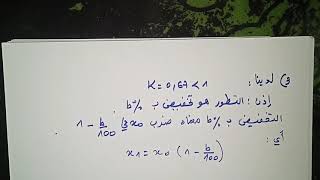 و لدينا: K = 0,67 < 1
إذن: التطور هو تخفيض ب b%
التخفيض ب b% معناه ضرب x0 في 1 - b/100
أي:
x1 = x0 (1 - b/100)